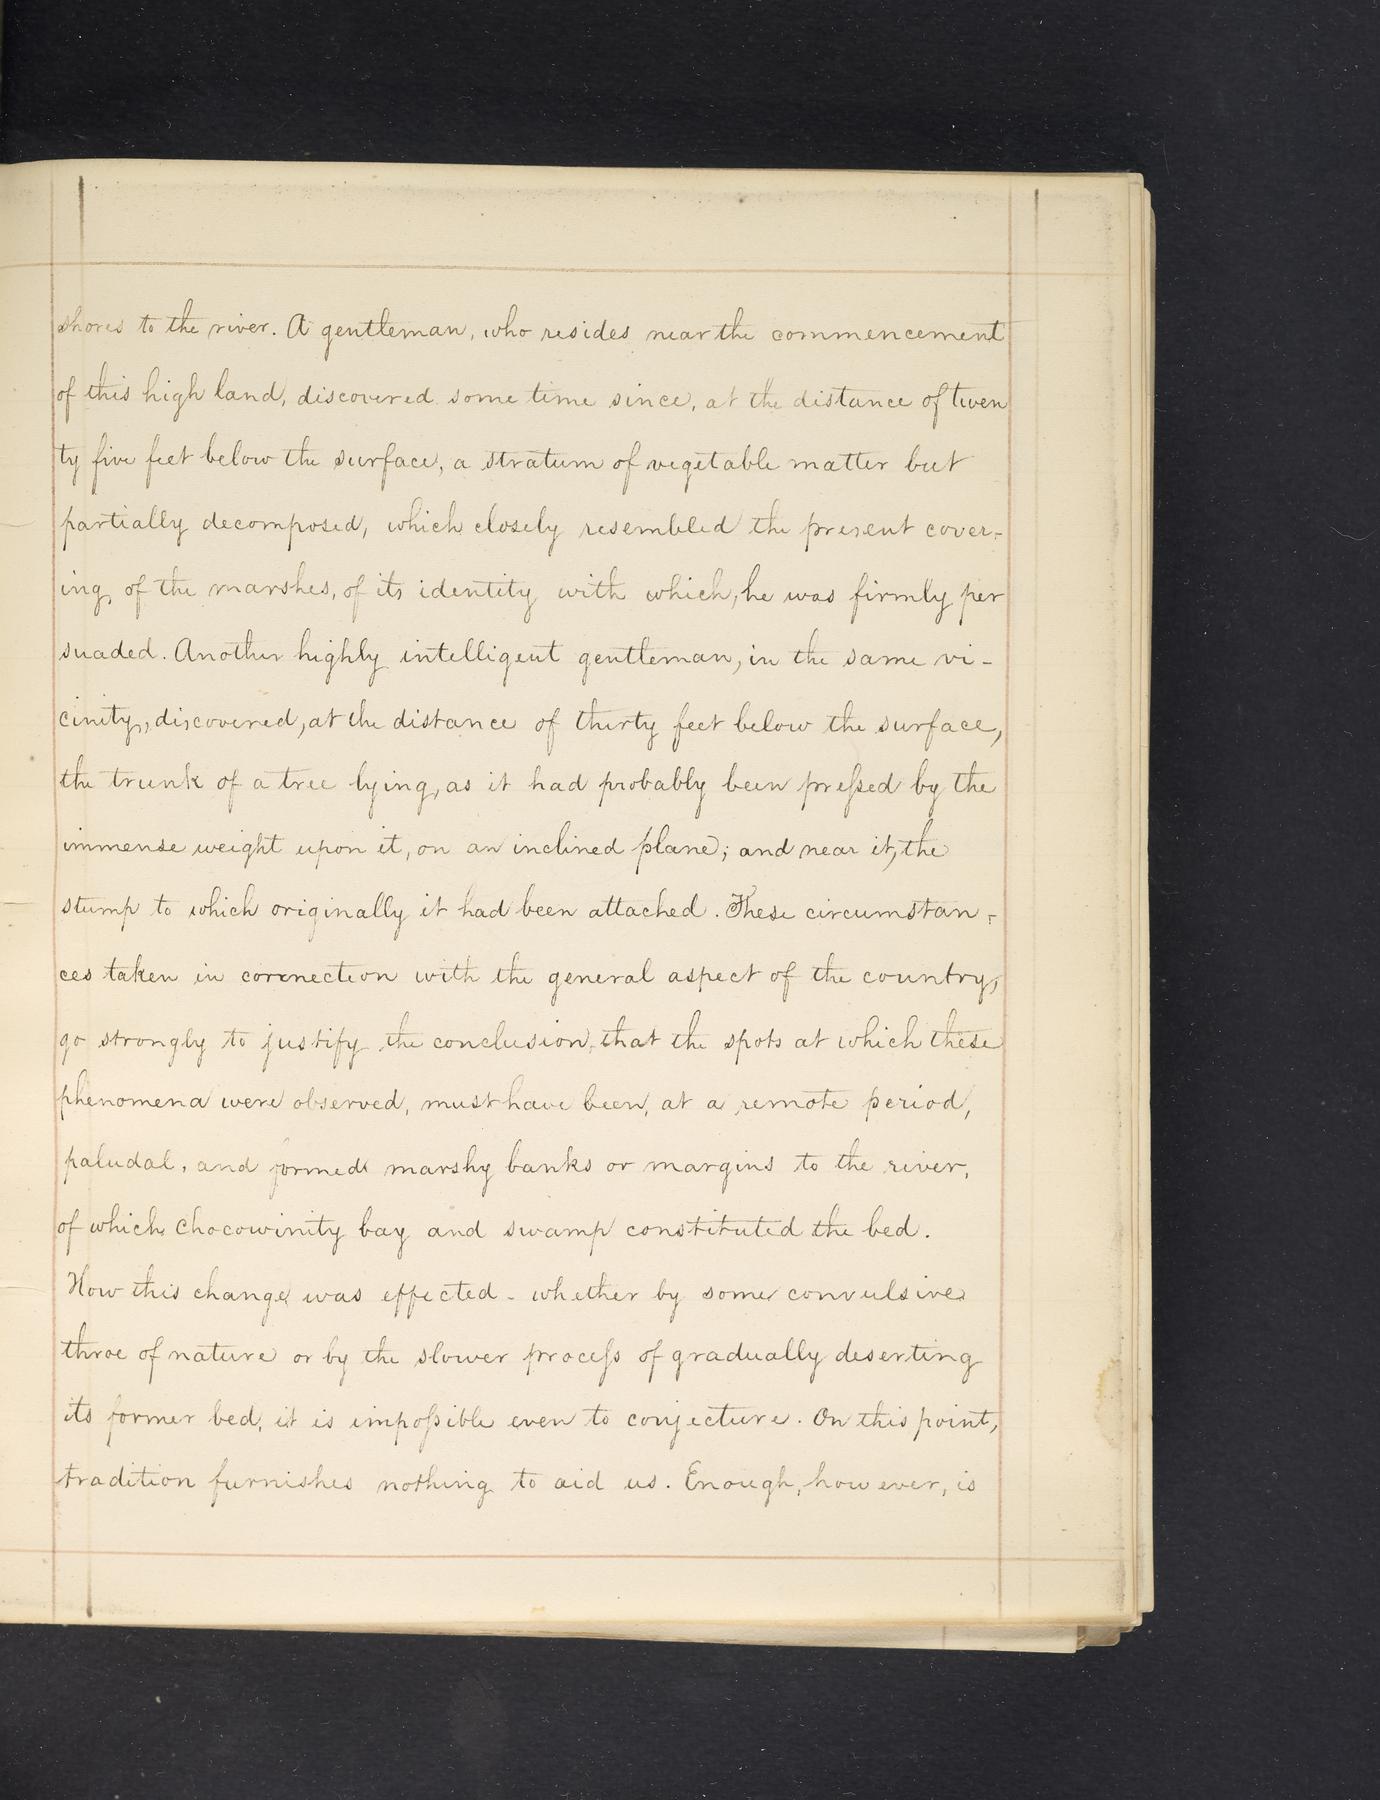 shores to the river. A gentleman, who resides near the commencement
of this high land, discovered some time since, at the distance of twen
ty five feet below the surface, a stratum of vegetable matter but
partially decomposed, which closely resembled the present cover-
ing, of the marshes, of its identity with which, he was firmly per
suaded. Another highly intelligent gentleman, in the same vi-
cinity, discovered, at the distance of thirty feet below the surface,
the trunk of a tree lying, as it had probably been pressed by the
immense weight upon it, on an inclined plane; and near it, the
stump to which originally it had been attached. These circumstan-
ces taken in connection with the general aspect of the country,
go strongly to justify the conclusion, that the spots at which these
phenomena were observed, must have been, at a remote period,
paludal, and formed marshy banks or margins to the river,
of which Chocowinity bay and swamp constituted the bed.
How this change was effected - whether by some convulsive
throe of nature or by the slower process of gradually deserting
its former bed, it is impossible even to conjecture. On this point,
tradition furnishes nothing to aid us. Enough, however, is